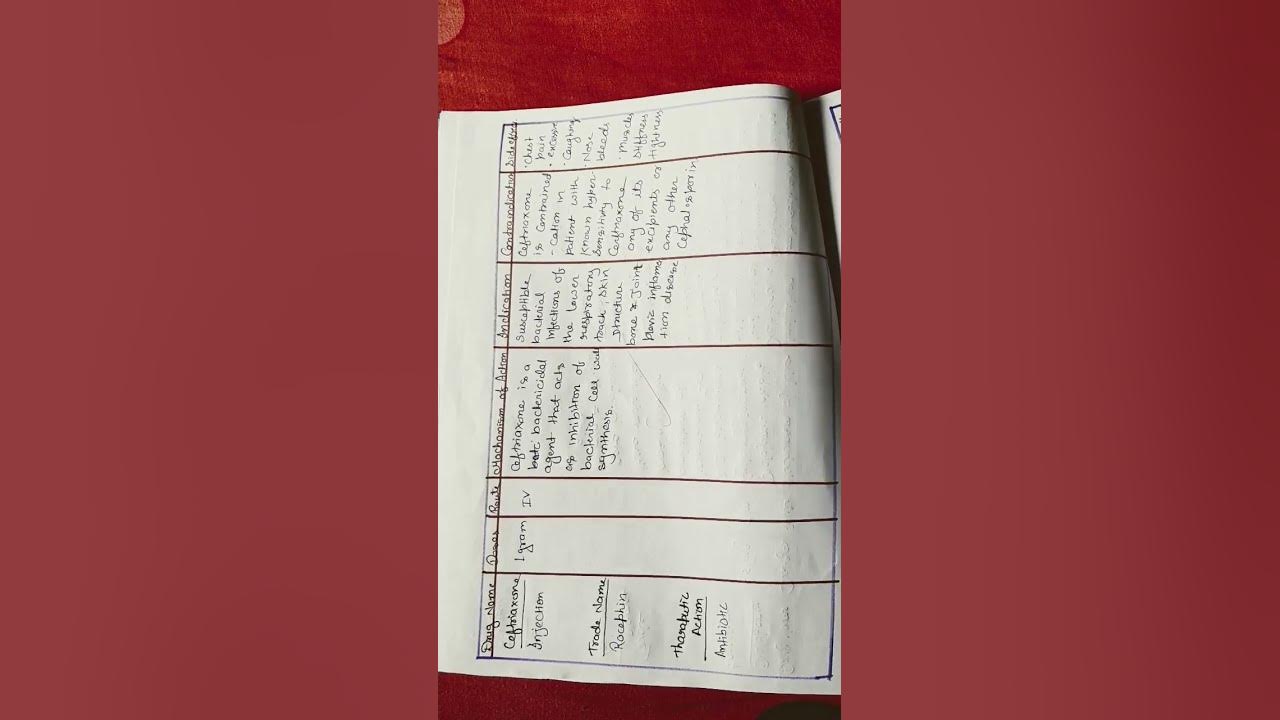 Drug Name
Ceftriaxone
Injection
Trade Name
Rocephin
Tharaputic
Action
Antibiotic
Doses
1 gram
Route
IV
Machanism of Action
Ceftriaxone is a
bactericidal
agent that acts
as inhibition of
bacterial Cell wall
synthesis.
Indication
Susceptible
bacterial
Infections of
the Lower
respiratory
track, Skin
Structure
bone & Joint
Pevic inflama
tion disease
Contraindication
Ceftriaxone
is Contrained
- Cation in
Patient with
Known hyper-
Sensitivity to
Ceriftriaxone
any of its
excipients or
any other
Cephalosporin
Side effects
• Chest
Pain
• excessive
• Caughing
• Nose
bleeds
• Muscles
Stiffness
tightness